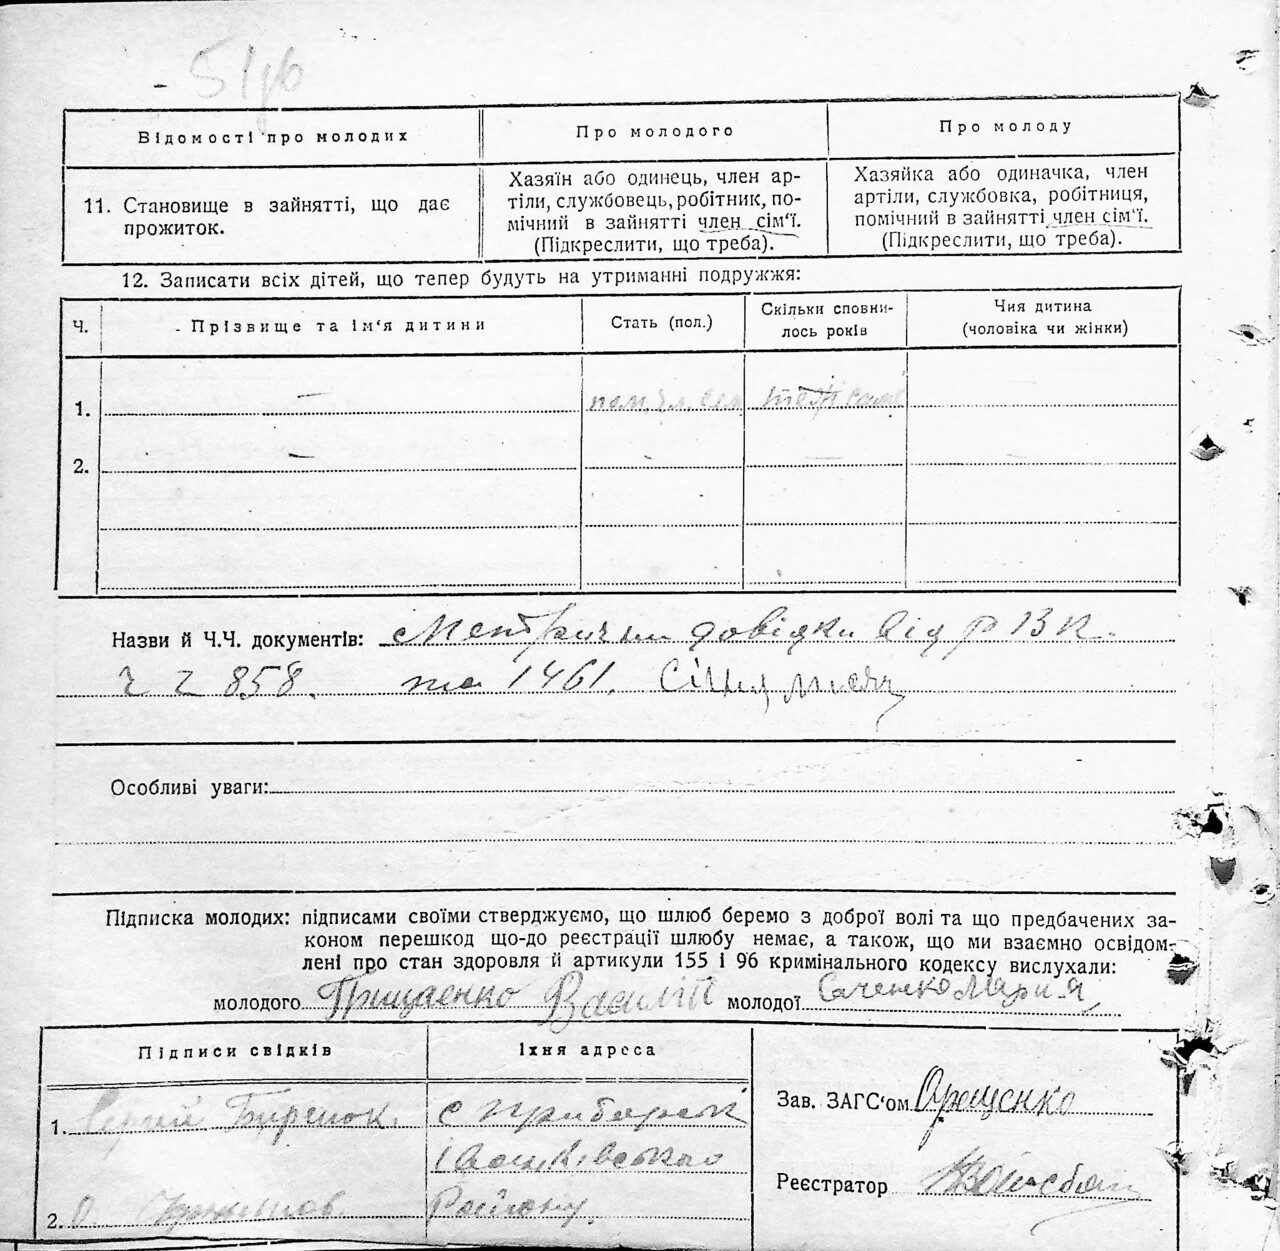 Відомості про молодих
Про молодого
Про молоду
11. Становище в зайнятті, що дає
прожиток.
Хазяїн або одинець, член ар-
тіли, службовець, робітник, по-
мічний в зайнятті член сім'ї.
(Підкреслити, що треба).
Хазяйка або одиначка, член
артіли, службовка, робітниця,
помічний в зайнятті член сім'ї.
(Підкреслити, що треба).
12. Записати всіх дітей, що тепер будуть на утриманні подружжя:
Ч.
Прізвище та ім'я дитини
Стать (пол.)
Скільки сповни-
лось років
Чия дитина
(чоловіка чи жінки)
1. —
2. —
Назви й Ч.Ч. документів: Метричні довідки від РВК.
ч ч 858. та 1461.
Особливі уваги:
Підписка молодих: підписами своїми стверджуємо, що шлюб беремо з доброї волі та що предбачених за-
коном перешкод що-до реєстрації шлюбу немає, а також, що ми взаємно освідом-
лені про стан здоровля й артикули 155 і 96 кримінального кодексу вислухали:
молодого Грищаенко Василій молодої Саченко Марія
Підписи свідків
Їхня адреса
1. Сергій
с
Іванківського
2. О
Району.
Зав. ЗАГС'ом Орещенко
Реєстратор